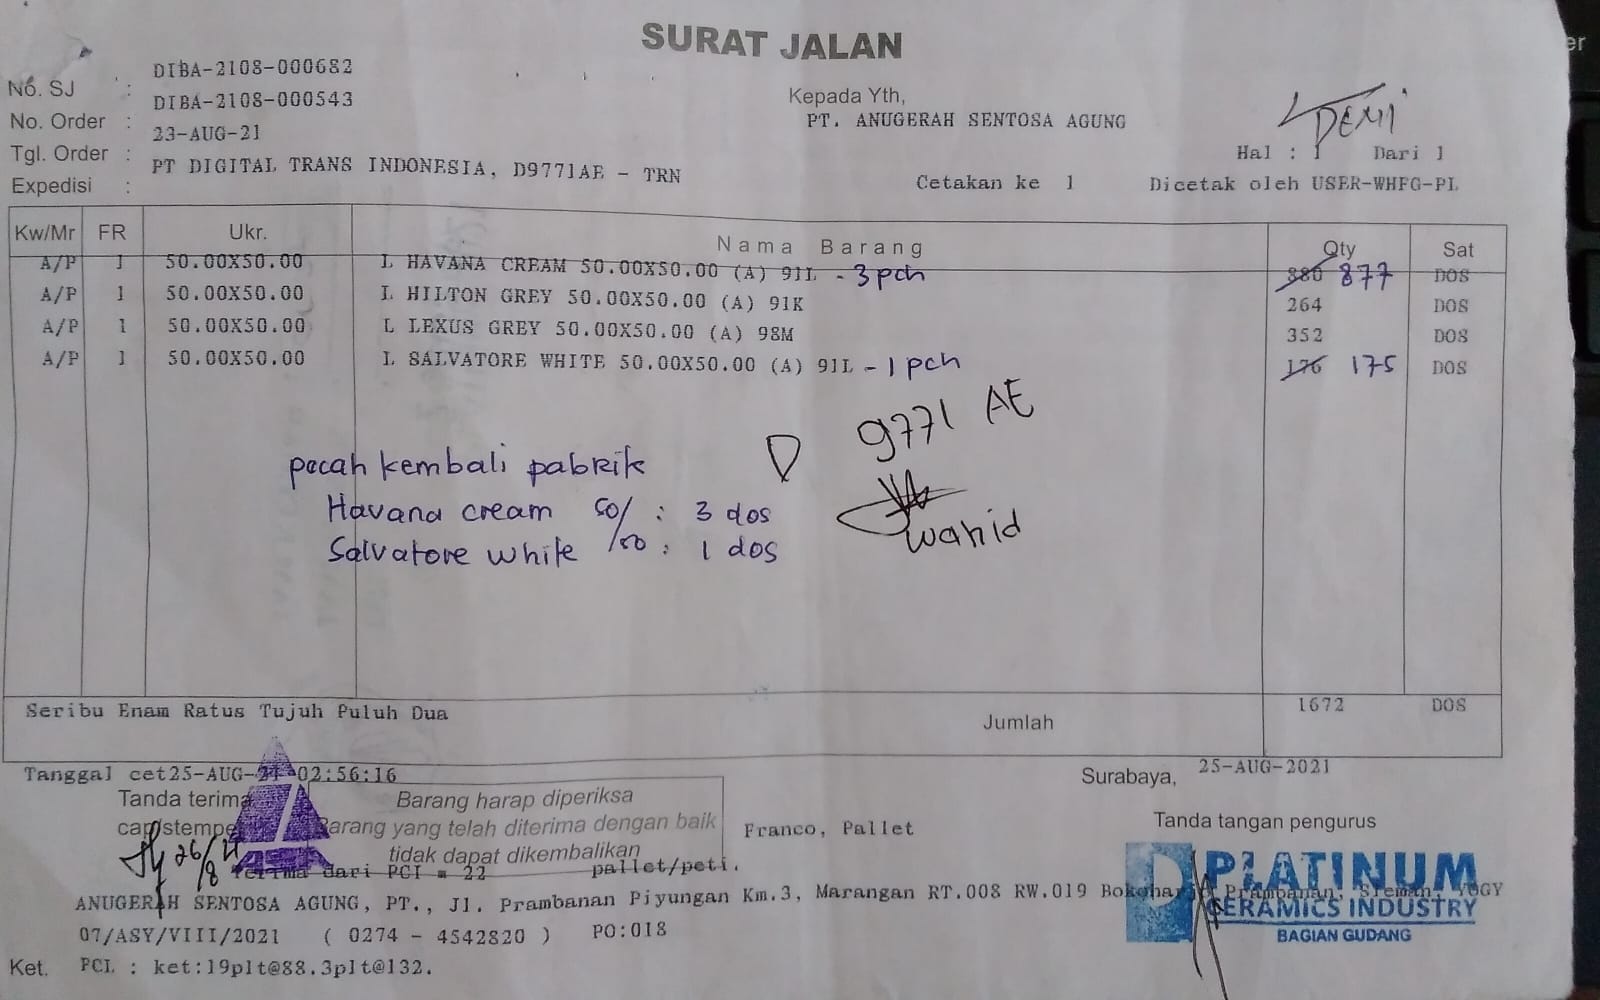 SURAT JALAN
No. SJ : DIBA-2108-000682
No. Order : DIBA-2108-000543
Tgl. Order : 23-AUG-21
Expedisi : PT DIGITAL TRANS INDONESIA, D9771AE - TRN
Kepada Yth,
PT. ANUGERAH SENTOSA AGUNG
DEMI
Hal : 1 Dari 1
Cetakan ke 1 Dicetak oleh USER-WHFG-PL
Kw/Mr FR Ukr. Nama Barang Qty Sat
A/P 1 50.00X50.00 L HAVANA CREAM 50.00X50.00 (A) 91L - 3 pch 880 877 DOS
A/P 1 50.00X50.00 L HILTON GREY 50.00X50.00 (A) 91K 264 DOS
A/P 1 50.00X50.00 L LEXUS GREY 50.00X50.00 (A) 98M 352 DOS
A/P 1 50.00X50.00 L SALVATORE WHITE 50.00X50.00 (A) 91L - 1 pch 176 175 DOS
D 9771 AE
pecah kembali pabrik
Havana cream 50/ : 3 dos
Salvatore white /50 : 1 dos
Wahid
Seribu Enam Ratus Tujuh Puluh Dua
Jumlah 1672 DOS
Tanggal cet25-AUG-21 02:56:16
Surabaya, 25-AUG-2021
Tanda terima
cap/stempel
26/8 21
Barang harap diperiksa
Barang yang telah diterima dengan baik
tidak dapat dikembalikan
Franco, Pallet
Tanda tangan pengurus
Terima dari PCI = 22 pallet/peti.
ANUGERAH SENTOSA AGUNG, PT., Jl. Prambanan Piyungan Km.3, Marangan RT.008 RW.019 Bokoharjo Prambanan, Sleman, YOGY
PLATINUM
CERAMICS INDUSTRY
BAGIAN GUDANG
07/ASY/VIII/2021 ( 0274 - 4542820 ) PO:018
Ket. PCL : ket:19plt@88.3plt@132.